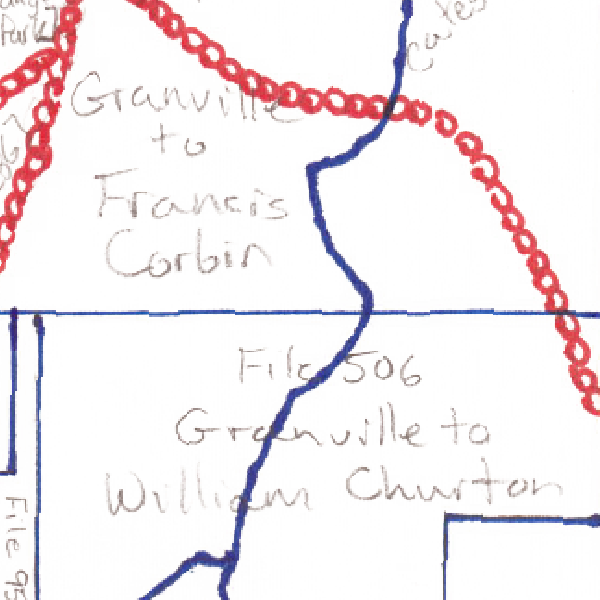 Park
Cates
Granville
to
Francis
Corbin
File 506
Granville to
William Churton
File 95